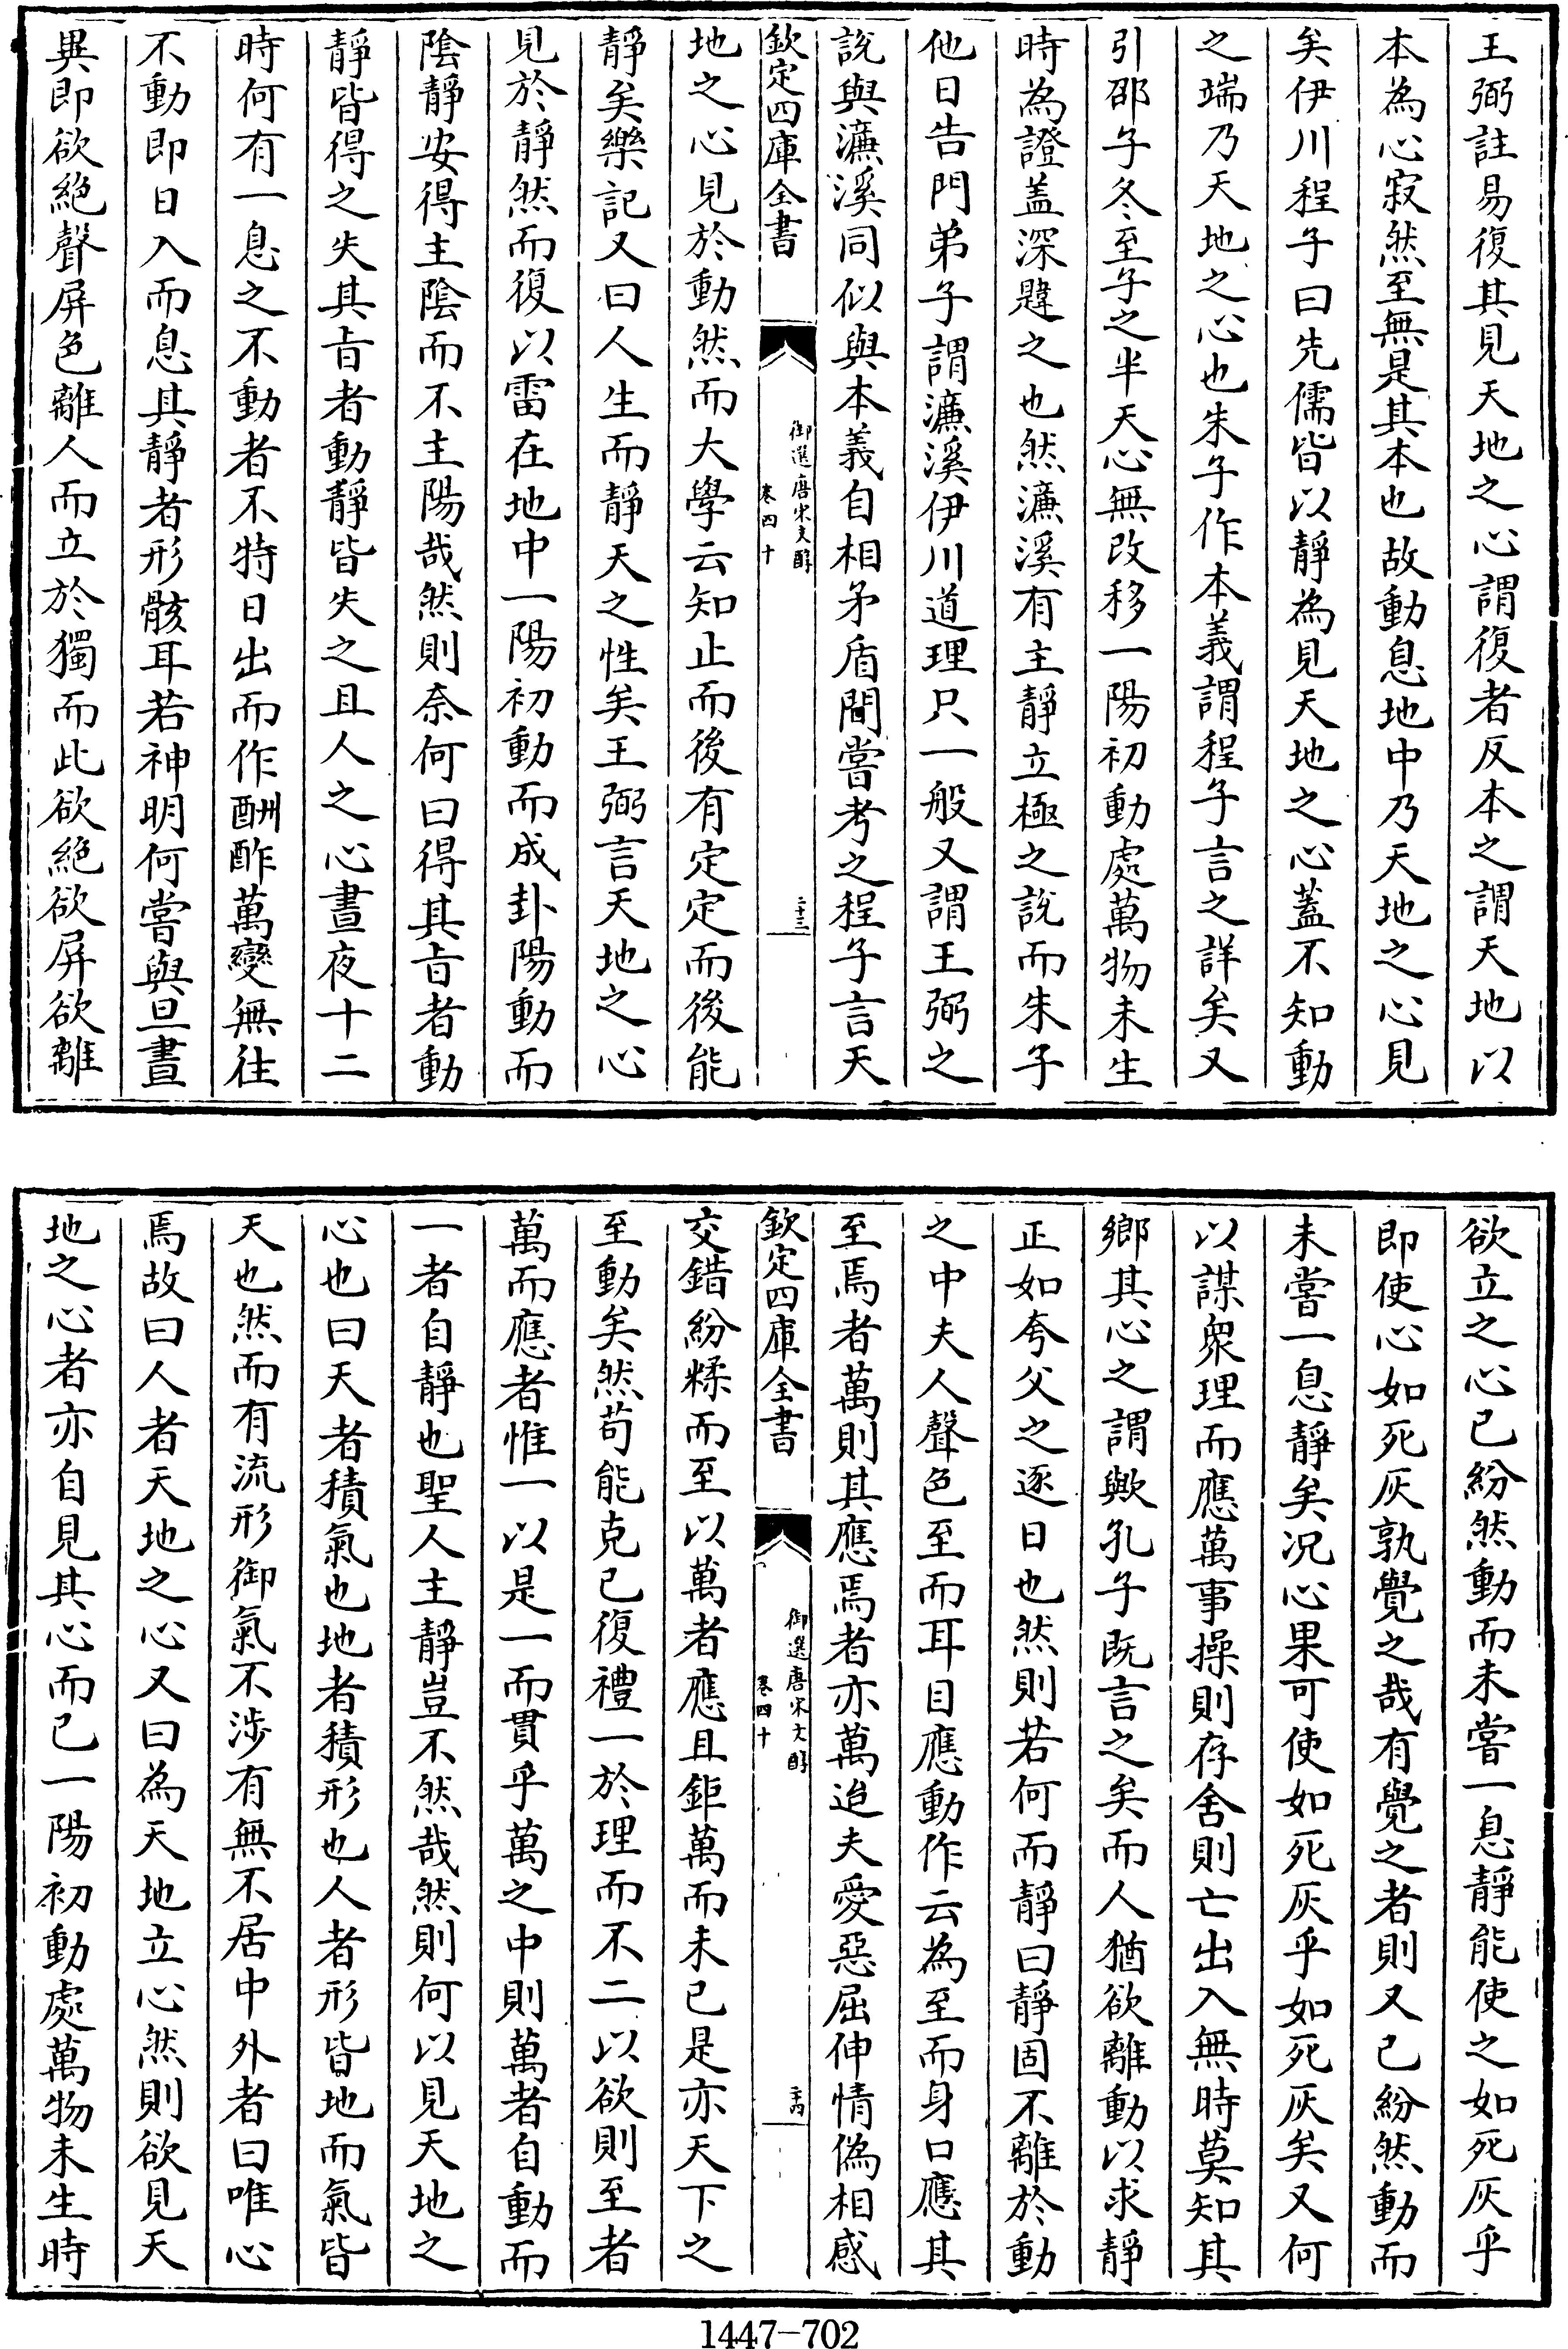 王弼註易復其見天地之心謂復者反本之謂天地以
本為心寂然至無是其本也故動息地中乃天地之心見
矣伊川程子曰先儒皆以靜為見天地之心蓋不知動
之端乃天地之心也朱子作本義謂程子言之詳矣又
引邵子冬至子之半天心無改移一陽初動處萬物未生
時為證盖深韙之也然濂溪有主靜立極之說而朱子
他日告門弟子謂濂溪伊川道理只一般又謂王弼之
說與濂溪同似與本義自相矛盾間嘗考之程子言天
欽定四庫全書
御選唐宋文醇
卷四十
二十三
地之心見於動然而大學云知止而後有定定而後能
靜矣樂記又曰人生而靜天之性矣王弼言天地之心
見於靜然而復以雷在地中一陽初動而成卦陽動而
陰靜安得主陰而不主陽哉然則奈何曰得其㫖者動
靜皆得之失其㫖者動靜皆失之且人之心晝夜十二
時何有一息之不動者不特日出而作酬酢萬變無往
不動即日入而息其靜者形骸耳若神明何嘗與旦晝
異即欲絕聲屏色離人而立於獨而此欲絕欲屏欲離
欲立之心已紛然動而未嘗一息靜能使之如死灰乎
即使心如死灰孰覺之哉有覺之者則又已紛然動而
未嘗一息靜矣况心果可使如死灰乎如死灰矣又何
以謀衆理而應萬事操則存舍則亡出入無時莫知其
鄉其心之謂歟孔子既言之矣而人猶欲離動以求靜
正如夸父之逐日也然則若何而靜曰靜固不離於動
之中夫人聲色至而耳目應動作云為至而身口應其
至焉者萬則其應焉者亦萬迨夫愛惡屈伸情偽相感
欽定四庫全書
御選唐宋文醇
卷四十
二十四
交錯紛糅而至以萬者應且鉅萬而未已是亦天下之
至動矣然苟能克己復禮一於理而不二以欲則至者
萬而應者惟一以是一而貫乎萬之中則萬者自動而
一者自靜也聖人主靜豈不然哉然則何以見天地之
心也曰天者積氣也地者積形也人者形皆地而氣皆
天也然而有流形御氣不涉有無不居中外者曰唯心
焉故曰人者天地之心又曰為天地立心然則欲見天
地之心者亦自見其心而已一陽初動處萬物未生時
1447-702